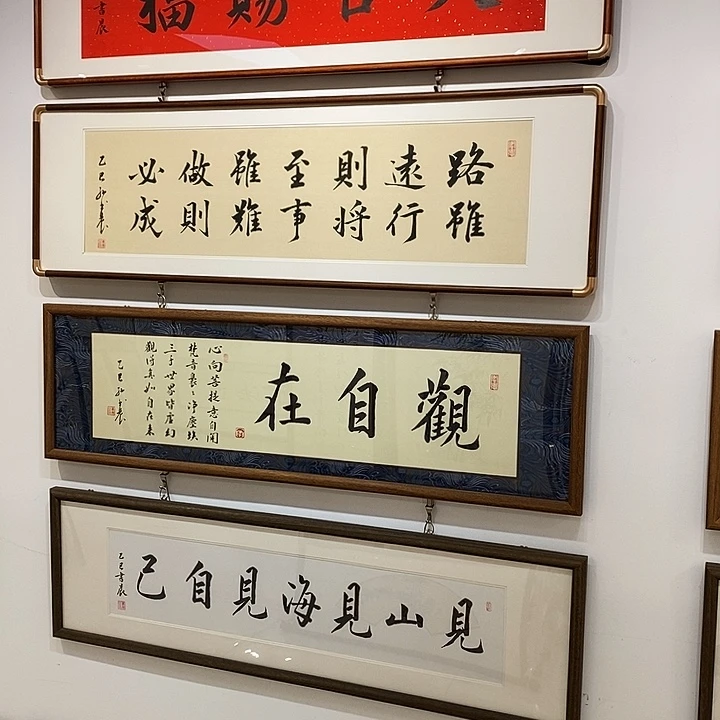 賜福
書晨
路雖
遠行
則將
至事
雖難
做則
必成
乙巳
觀自在
心向菩提意自開
梵音裊々淨塵埃
三千世界皆虛幻
觀得真如自在来
乙巳
見山見海見自己
乙巳書晨